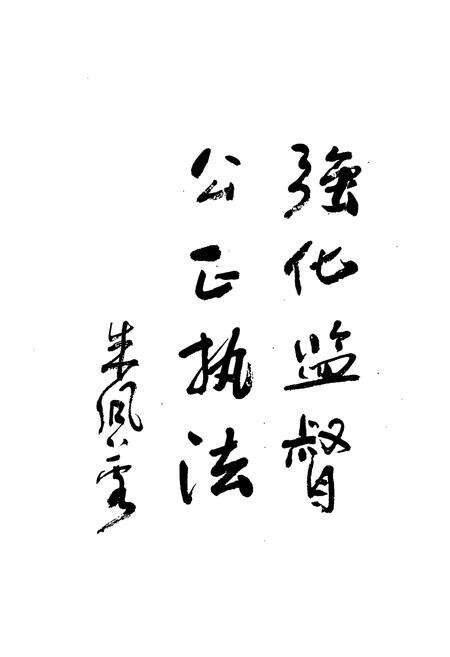 强化监督
公正执法
朱凤云